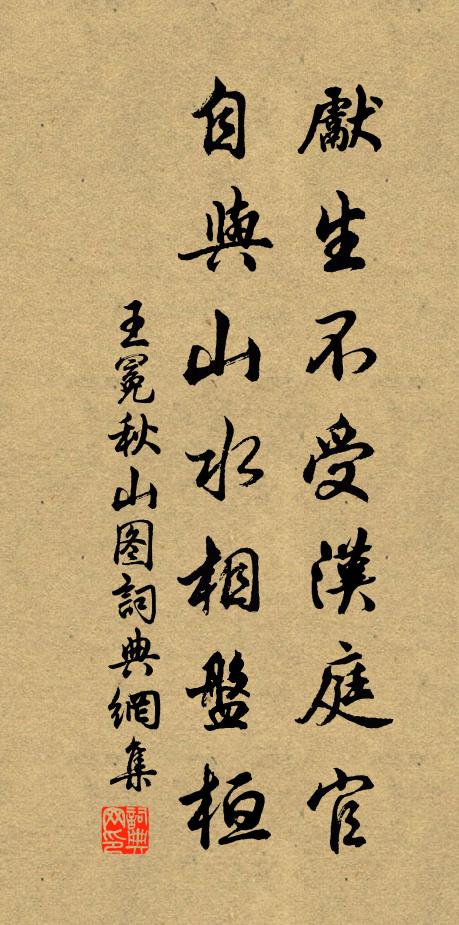 獻生不受漢庭官
自與山水相盤桓
王冕秋山图詞典網集
詞典
网印